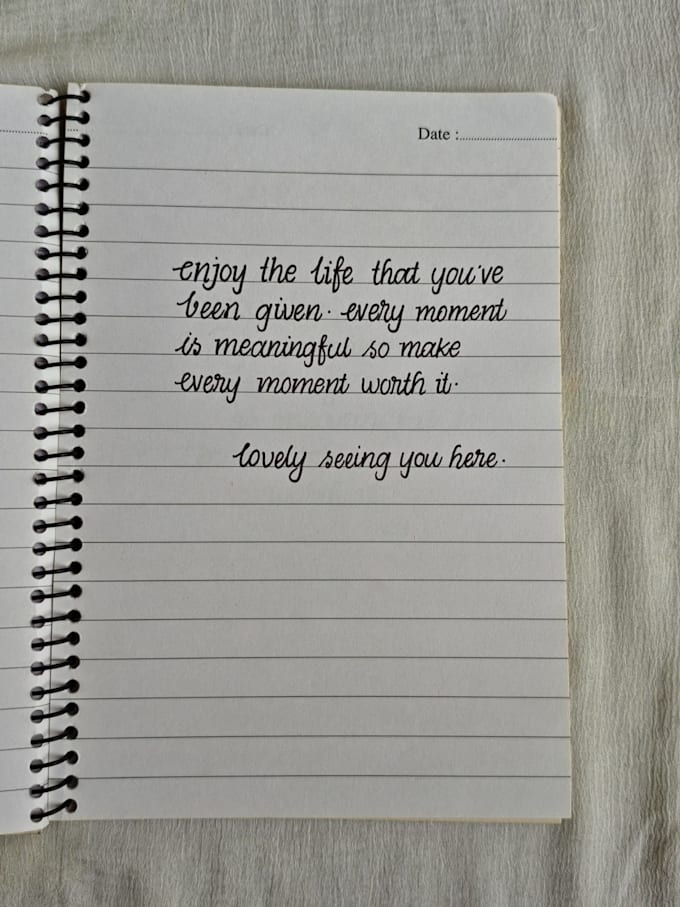 Date :
enjoy the life that you've
been given. every moment
is meaningful so make
every moment worth it.
lovely seeing you here.